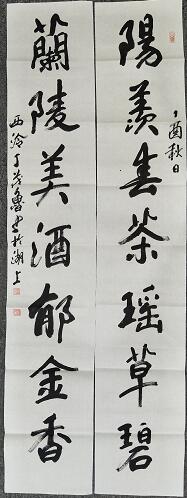 陽羨春茶瑶草碧
丁酉秋日
蘭陵美酒郁金香
西泠丁茂魯書於湖上